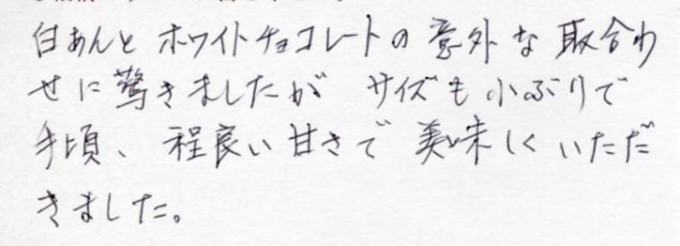 白あんとホワイトチョコレートの意外な取合わ
せに驚きましたが サイズも小ぶりで
手頃、程良い甘さで美味しくいただ
きました。